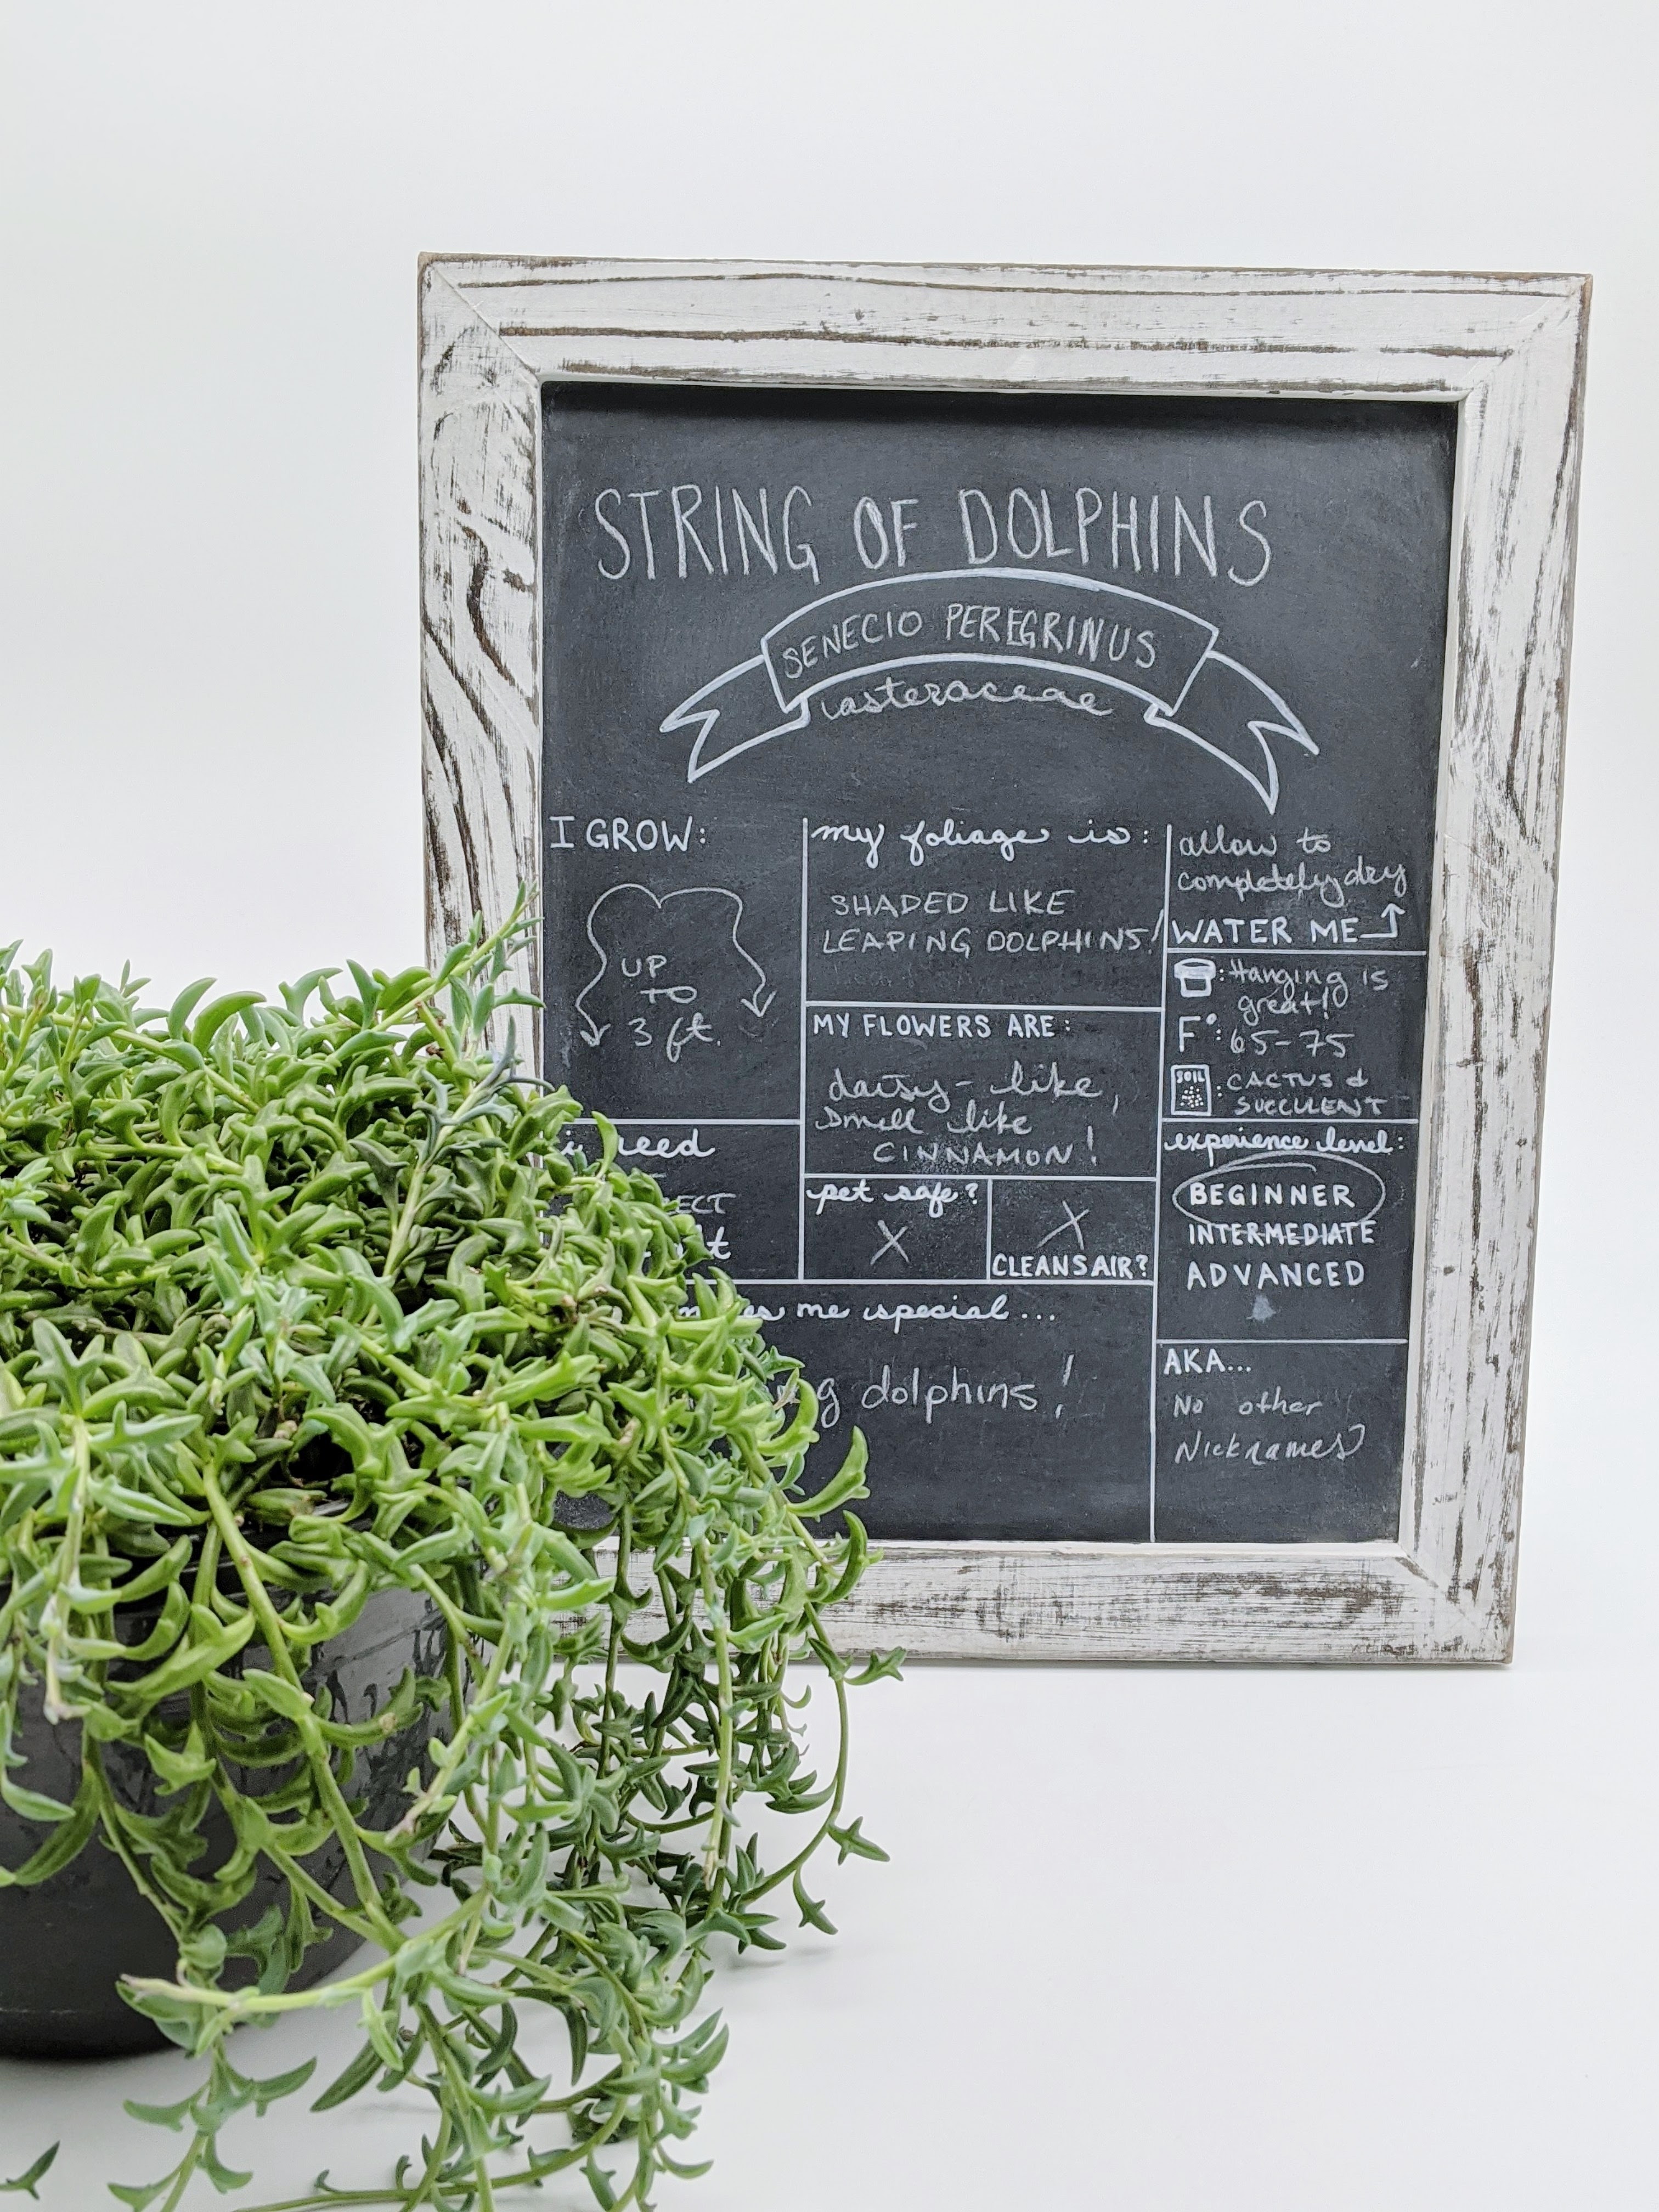 STRING OF DOLPHINS
SENECIO PEREGRINUS
asteraceae
I GROW:
UP
TO
3 ft.
my foliage is:
SHADED LIKE
LEAPING DOLPHINS!
MY FLOWERS ARE:
daisy-like,
smell like
CINNAMON!
pet safe?
X
X
CLEANS AIR?
i need
me special...
dolphins!
allow to
completely dry
WATER ME
: Hanging is
great!
F°: 65-75
SOIL : CACTUS &
SUCCULENT
experience level:
BEGINNER
INTERMEDIATE
ADVANCED
AKA...
No other
Nicknames